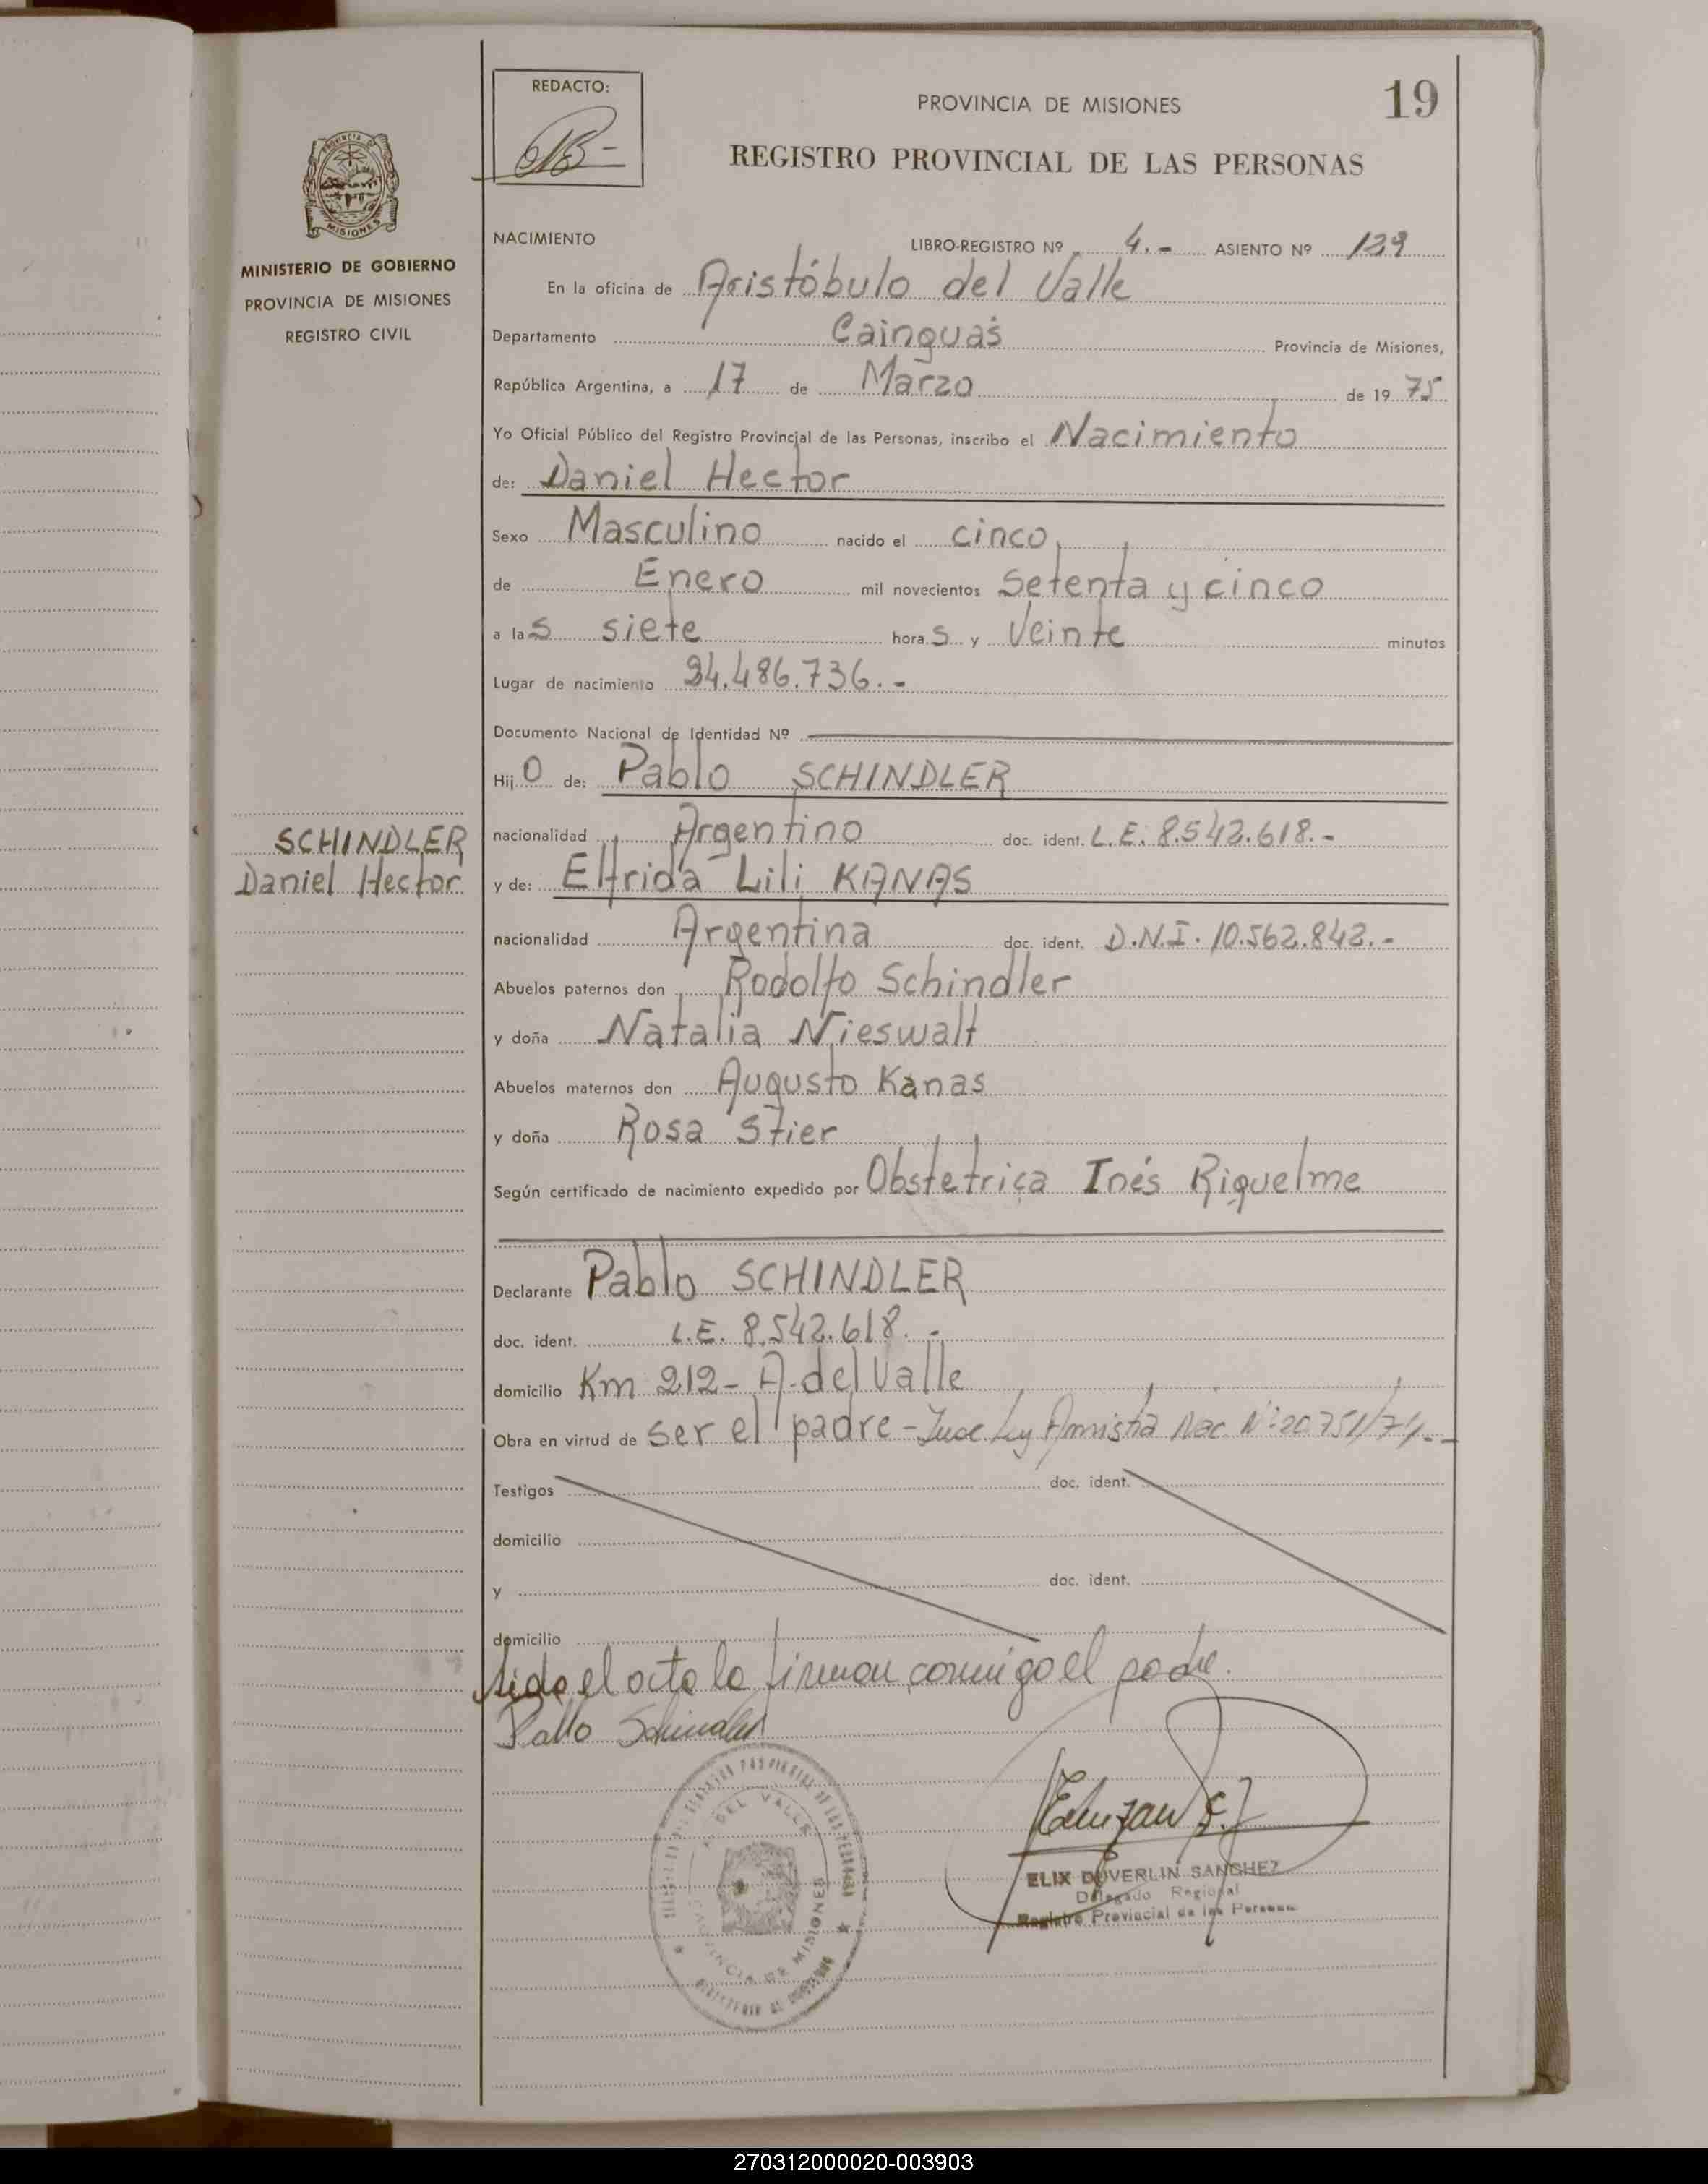 REDACTO:
19
PROVINCIA DE MISIONES
REGISTRO PROVINCIAL DE LAS PERSONAS
PROVINCIA
MISIONES
MINISTERIO DE GOBIERNO
PROVINCIA DE MISIONES
REGISTRO CIVIL
NACIMIENTO LIBRO-REGISTRO Nº 4.- ASIENTO Nº 139
En la oficina de Aristóbulo del Valle
Departamento Cainguás Provincia de Misiones,
República Argentina, a 17 de Marzo de 1975
Yo Oficial Público del Registro Provincial de las Personas, inscribo el Nacimiento
de: Daniel Hector
Sexo Masculino nacido el cinco
de Enero mil novecientos Setenta y cinco
a las siete horas y Veinte minutos
Lugar de nacimiento 24.486.736.-
Documento Nacional de Identidad Nº
Hijo de: Pablo SCHINDLER
SCHINDLER
Daniel Hector
nacionalidad Argentino doc. ident. L.E. 8.542.618.-
y de: Elfrida Lili KANAS
nacionalidad Argentina doc. ident. D.N.I. 10.562.842.-
Abuelos paternos don Rodolfo Schindler
y doña Natalia Nieswalt
Abuelos maternos don Augusto Kanas
y doña Rosa Stier
Según certificado de nacimiento expedido por Obstetrica Inés Riquelme
Declarante Pablo SCHINDLER
doc. ident. L.E. 8.542.618.-
domicilio Km 212- A. del Valle
Obra en virtud de ser el padre - Ley Amnistia Nac. Nº 20.751/74.-
Testigos doc. ident.
domicilio
y doc. ident.
domicilio
Lida el acta la firman conmigo el padre.
Pablo Schindler
A. DEL VALLE
PROVINCIA DE MISIONES
ELIX DUVERLIN SANCHEZ
Delegado Regional
Registro Provincial de las Personas
270312000020-003903